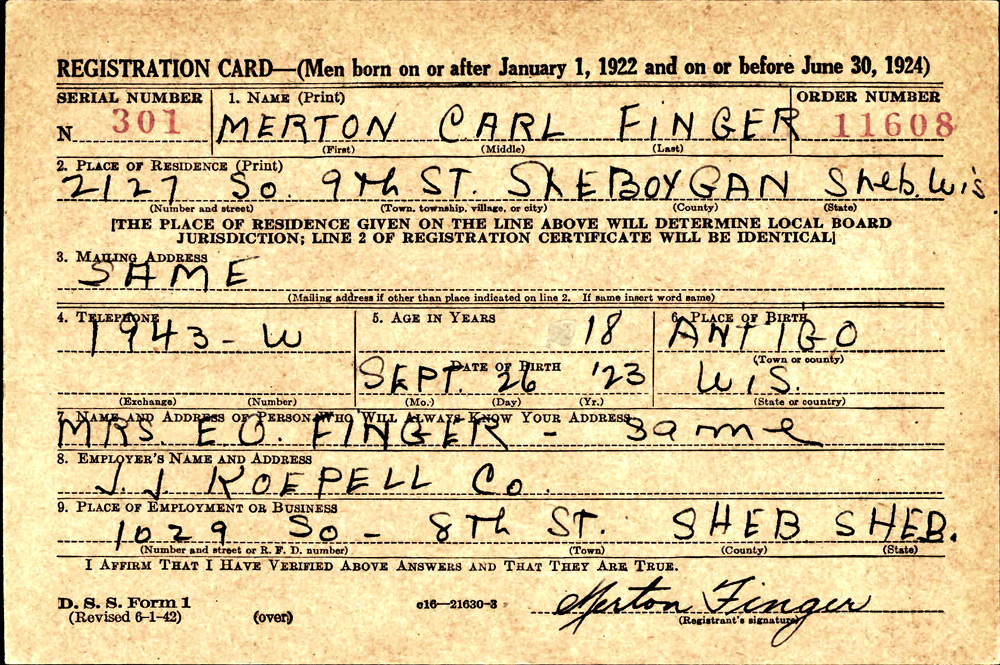 REGISTRATION CARD—(Men born on or after January 1, 1922 and on or before June 30, 1924)
SERIAL NUMBER 1. NAME (Print) ORDER NUMBER
N 301 MERTON CARL FINGER 11608
(First) (Middle) (Last)
2. PLACE OF RESIDENCE (Print)
2127 So. 9th ST. ShEBOYGAN Sheb. Wis
(Number and street) (Town, township, village, or city) (County) (State)
[THE PLACE OF RESIDENCE GIVEN ON THE LINE ABOVE WILL DETERMINE LOCAL BOARD
JURISDICTION; LINE 2 OF REGISTRATION CERTIFICATE WILL BE IDENTICAL]
3. MAILING ADDRESS
SAME
(Mailing address if other than place indicated on line 2. If same insert word same)
4. TELEPHONE 5. AGE IN YEARS 6. PLACE OF BIRTH
1943-W 18 ANTIGO
(Town or county)
DATE OF BIRTH
SEPT. 26 '23 WIS.
(Exchange) (Number) (Mo.) (Day) (Yr.) (State or country)
7. NAME AND ADDRESS OF PERSON WHO WILL ALWAYS KNOW YOUR ADDRESS
MRS. E O. FINGER - Same
8. EMPLOYER'S NAME AND ADDRESS
J. J. KOEPELL Co.
9. PLACE OF EMPLOYMENT OR BUSINESS
1029 So - 8Th ST. SHEB SHEB.
(Number and street or R. F. D. number) (Town) (County) (State)
I AFFIRM THAT I HAVE VERIFIED ABOVE ANSWERS AND THAT THEY ARE TRUE.
D. S. S. Form 1
(Revised 6-1-42) (over) c16—21630-3 Merton Finger
(Registrant's signature)